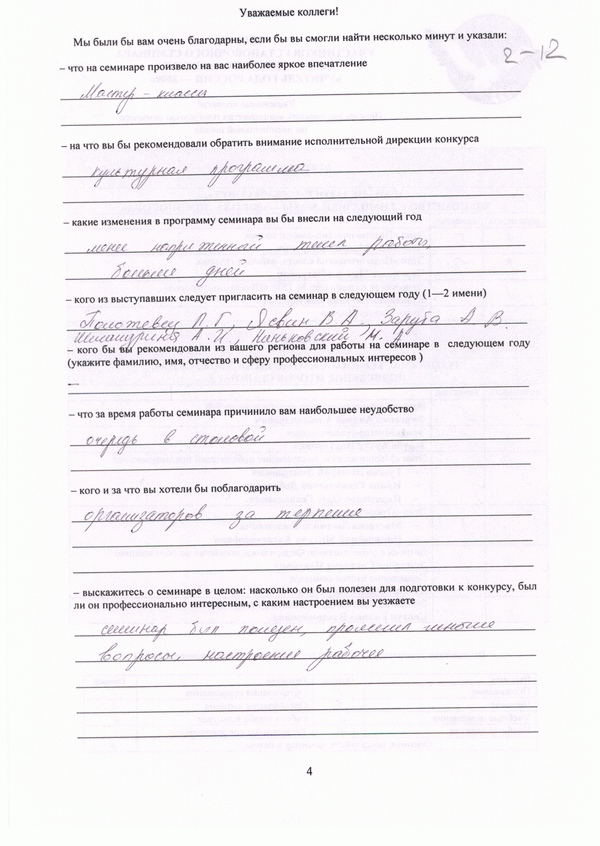 Уважаемые коллеги!
Мы были бы вам очень благодарны, если бы вы смогли найти несколько минут и указали:
2-12
– что на семинаре произвело на вас наиболее яркое впечатление
Мастер-классы
– на что вы бы рекомендовали обратить внимание исполнительной дирекции конкурса
культурная программа
– какие изменения в программу семинара вы бы внесли на следующий год
менее напряженный темп работы,
больше дней
– кого из выступавших следует пригласить на семинар в следующем году (1—2 имени)
Л. Г., Явин В А, Заруба А В.
А. И.
– кого бы вы рекомендовали из вашего региона для работы на семинаре в следующем году
(укажите фамилию, имя, отчество и сферу профессиональных интересов )
–
– что за время работы семинара причинило вам наибольшее неудобство
очередь в столовой
– кого и за что вы хотели бы поблагодарить
организаторов за терпение
– выскажитесь о семинаре в целом: насколько он был полезен для подготовки к конкурсу, был
ли он профессионально интересным, с каким настроением вы уезжаете
семинар был полезен, прояснил многие
вопросы, настроение рабочее
4